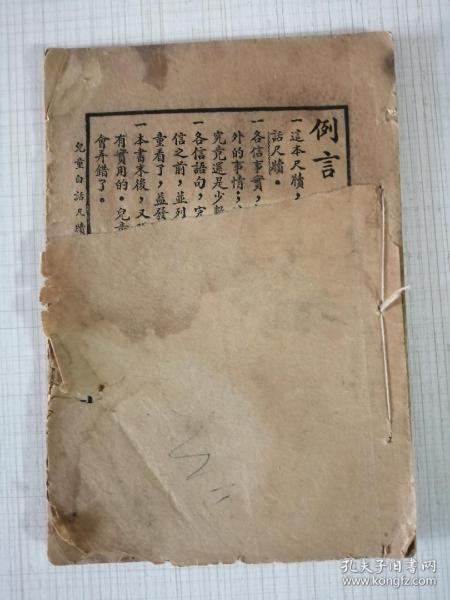 例言
一這本尺牘，
話尺牘。
一各信事實，
外的事情；
究竟還是少
一各信語句，
信之前，並列
童看了，益發
一本書末後，又
有實用的。兒童
會弄錯了。
兒童白話尺牘
孔夫子旧书网
www.kongfz.com